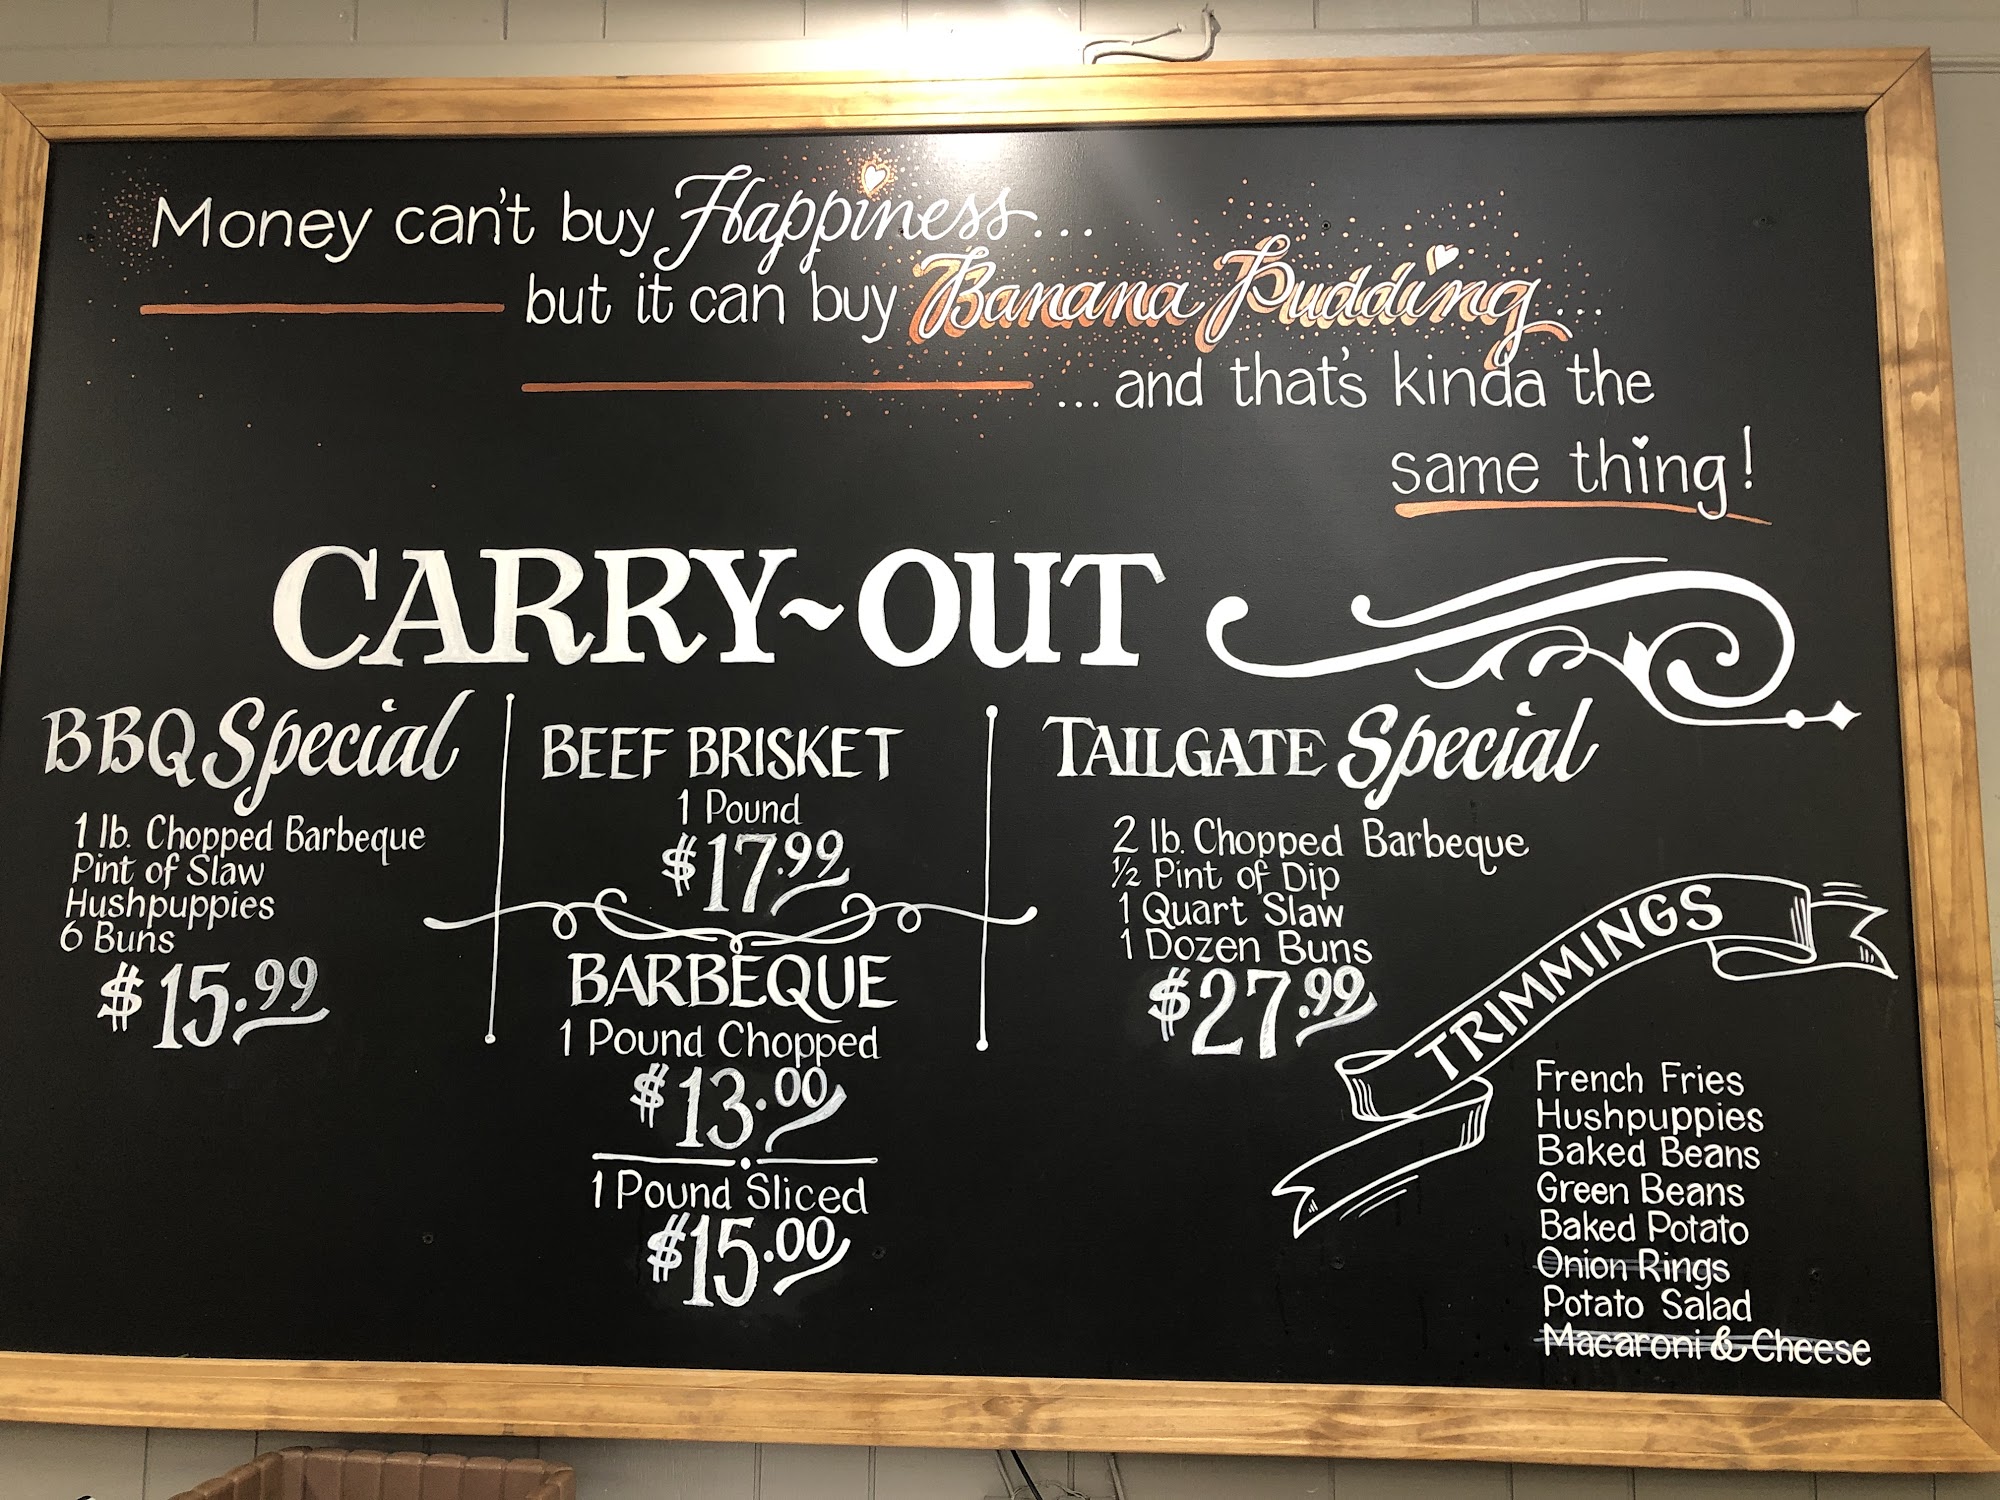 Money can't buy Happiness...
but it can buy Banana Pudding...
...and that's kinda the
same thing!
CARRY~OUT
BBQ Special
1 lb. Chopped Barbeque
Pint of Slaw
Hushpuppies
6 Buns
$15.99
BEEF BRISKET
1 Pound
$17.99
BARBEQUE
1 Pound Chopped
$13.00
1 Pound Sliced
$15.00
TAILGATE Special
2 lb. Chopped Barbeque
½ Pint of Dip
1 Quart Slaw
1 Dozen Buns
$27.99
TRIMMINGS
French Fries
Hushpuppies
Baked Beans
Green Beans
Baked Potato
Onion Rings
Potato Salad
Macaroni & Cheese